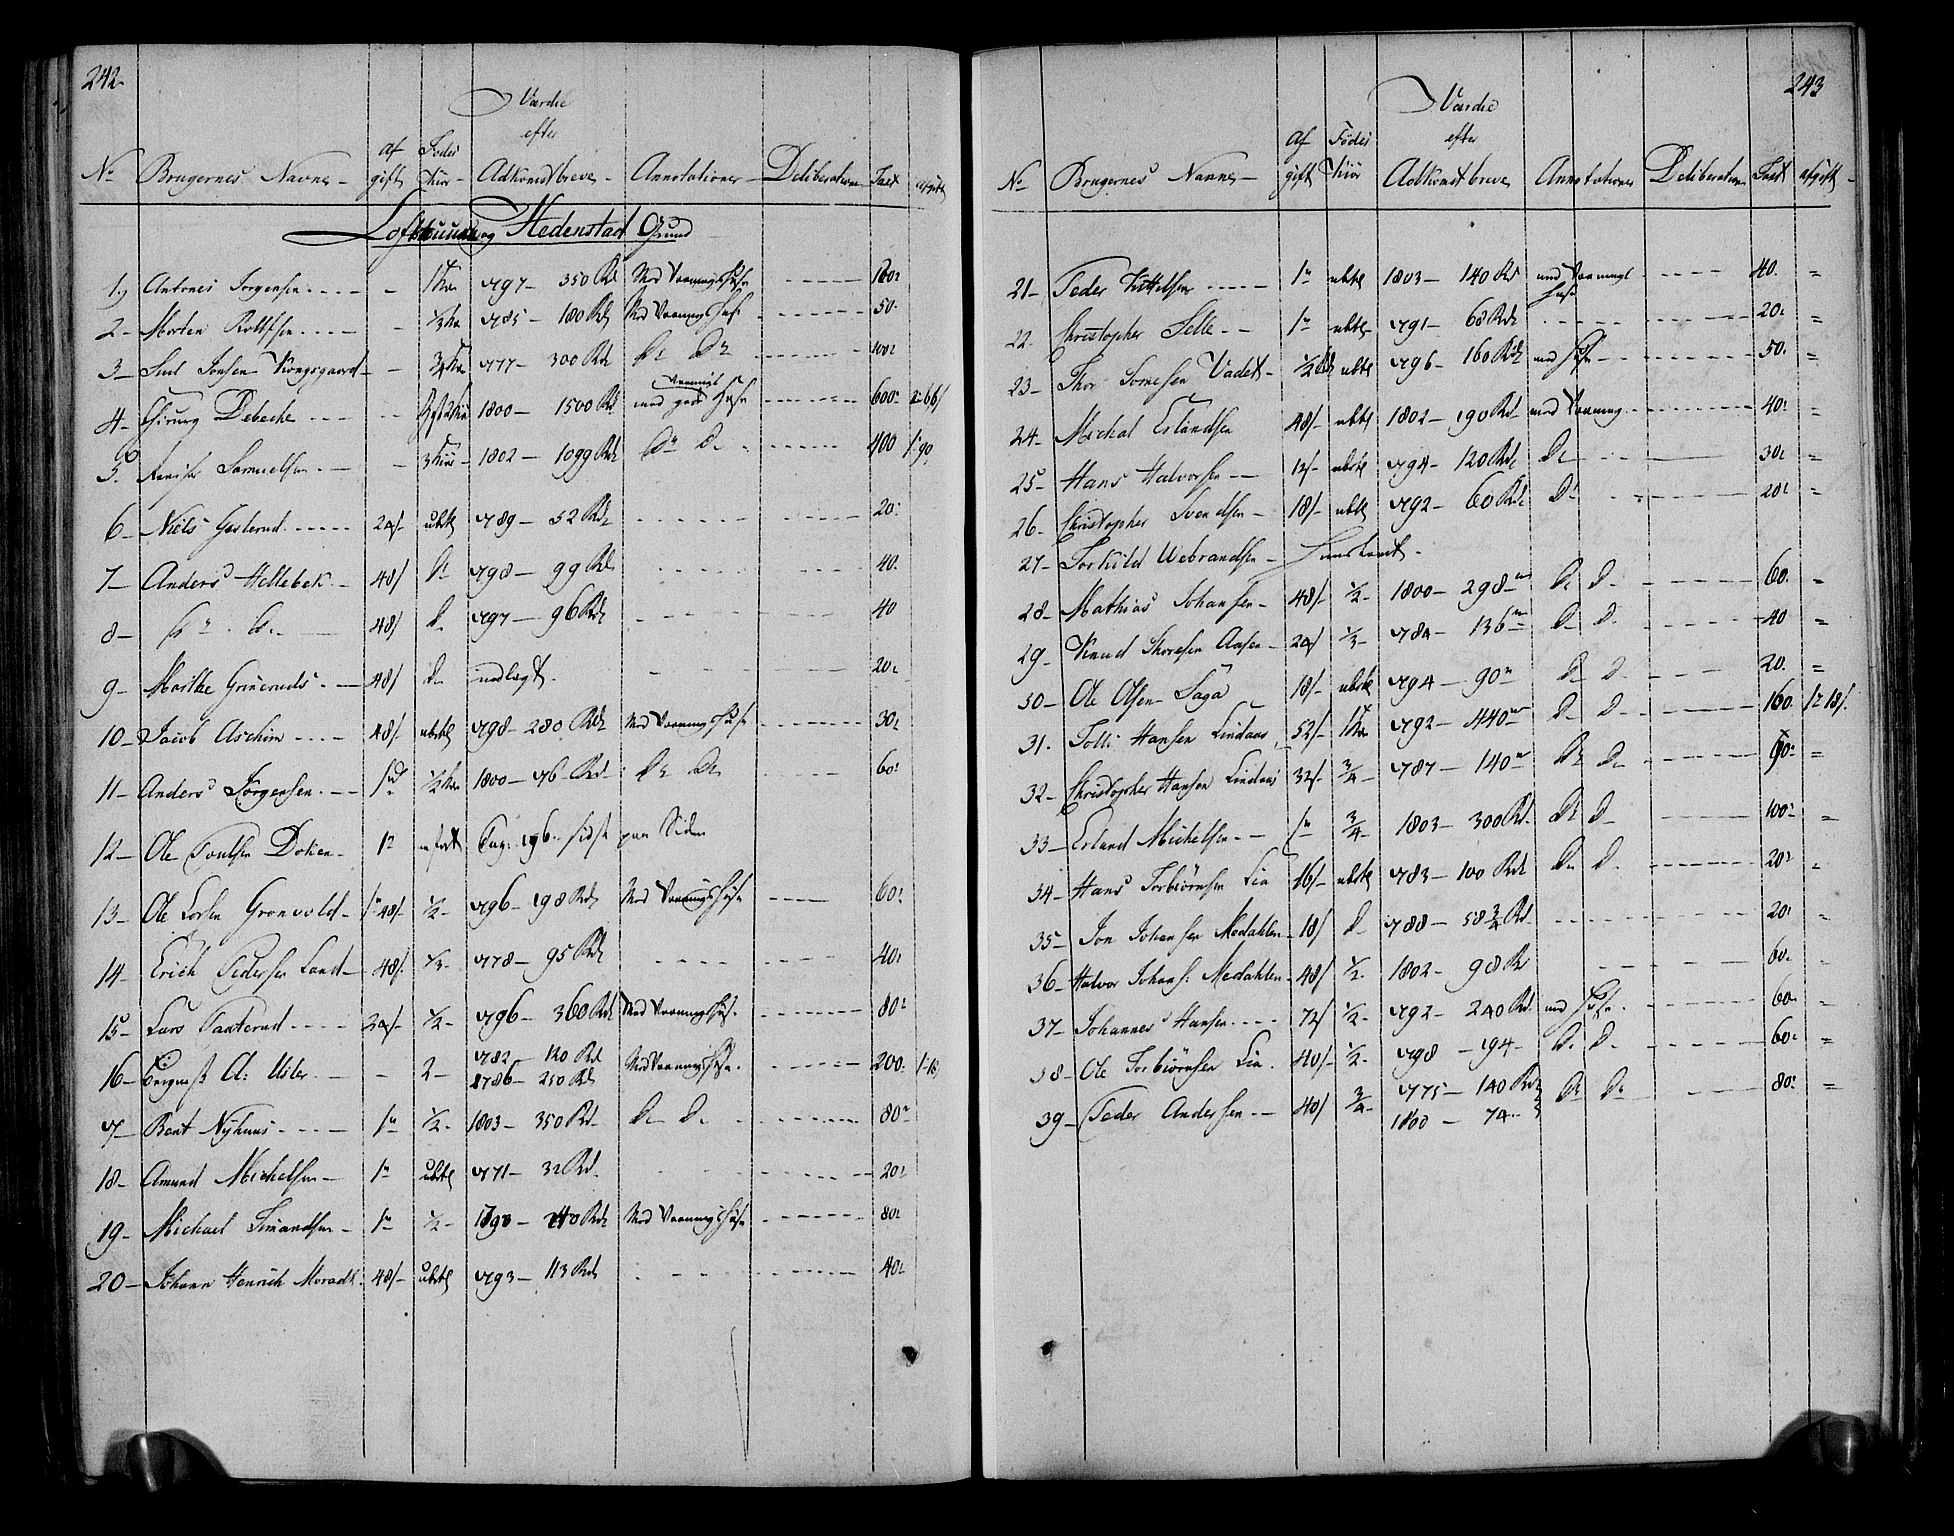 242.
Værdie
efter
af Födes
No Brugernes Navne gift kiör Adkomstbreve Annotationer Deliberation Taxt afgift
og Hedenstad Grund
1. Antonei Jorgensen - 1 Kue 1797 - 350 Rd Med Vaaningshuse 160
2 - Morten Rolffsen - 1/2 Kue 1785 - 180 Rd Med Vaaningshuse 50
3 - Jonsen Kongsgaard - 3/4 Kue 1777 - 300 Rd Do Do 100
4 - Chirurg Debeche - 1800 - 1500 Rd med gode Vaanings Huse 600 2 - 66
5. Samuelsen - 3 Kiör 1802 - 1099 Rd Do Do 400 1 - 90
6 - Niels - 24/ ubst 1789 - 52 Rd 20
7 - Anders Hellebek - 48/ Do 1798 - 99 Rd 40
8 - Do Do 48/ Do 1797 - 96 Rd 40
9 - Marthe Grüeruds - 48/ Do nedlagt. 20
10 - Jacob Aschim - 48/ ubstl 1798 - 280 Rd Med Vaaningshuse 30
11 - Anders Jörgensen - 1 1/2 Kue 1800 - 76 Rd Do Do 60
12 - Ole Poulsen Doken - 1 Pag: 196 sidst paa Siden
13 - Ole Larsen Gronvold - 1 48/ 1/2 - 1796 - 198 Rd Med Vaaningshuse 60
14 - Erich Pedersen Land - 48/ 1/3 - 1778 - 95 Rd 40
15 - Lars - 24/ 1/2 - 1796 - 360 Rd Med Vaaningshuse. 80
16 - A: Usler - 2 - 1782 - 120 Rd Med Vaaningshuse. 200 1 - 18
1786 - 250 Rd
17 - Bent Nyhuus - 1 1/2 - 1803 - 350 Rd Do Do 80
18 - Amund Michelsen - 1 ubstl 1771 - 32 Rd. 20
19 - Michael Simandsen - 1 1/2 - 1790 - 240 Rd Med Vaaningshuse 80
20 - Johann Henrich Moradt - 48/ ubstl 1793 - 113 Rd 40
243
Værdie
efter
af Födes
No Brugernes Navne gift kiör Adkomstbreve Annotationer Deliberation Taxt afgift
21 - Peder Kittelsen - 1 ubstl 1803 - 140 Rd med Vaanings Huse 40
22. Christopher Selle - 1 ubstl 1791 - 68 Rd 20
23 - Thor Vadet - 1/2 Rd ubstl 1796 - 160 Rd med Huse 50
24 - Michal Erlandsen 48/ ubstl 1802 - 190 Rd med Vaaning 40
25 - Hans Halvorsen - 12/ ubstl 1794 - 120 Rd Do 30
26 - Christopher Svendsen - 18/ ubstl 1792 - 60 Rd Do 20
27 - Torkild Uebrandsen -
28 - Mathias Johansen - 48/ 1/2 - 1800 - 298 Do Do 60
29 - Knud Thoresen Aasen - 24/ 1/3 - 1784 - 136 Do Do 40
30 - Ole Olsen Saga 18/ ubstl 1794 - 90 Do Do 20
31. Tolli Hansen Lindaas 52/ 1 Kue 1792 - 440 Do Do 160 1 - 18/
32 - Christopher Hansen Lindaas 32/ 3/4 - 1787 - 140 Do Do 90
33 - Erland Michelsen - 1 3/4 - 1803 - 300 Rd Do Do 100
34 - Hans Torbiörnsen Lia 16/ ubstl 1783 - 100 Rd Do Do 20
35 - Jon Johansen Medahlen 18/ Do 1788 - 58 3/4 Rd 20
36 - Halvor Johans: Medahlen - 48/ 1/2 - 1802 - 98 Rd 60
37 - Johannes Hansen - 72/ 1/2 - 1792 - 240 Rd med Huse 60
38 - Ole Torbiörnsen Lia. 40/ 1/2 - 1798 - 194 - Do Do 60
39 - Peder Andersen - 40/ 3/4 - 1775 - 140 Rd Do Do 80
1800 - 74